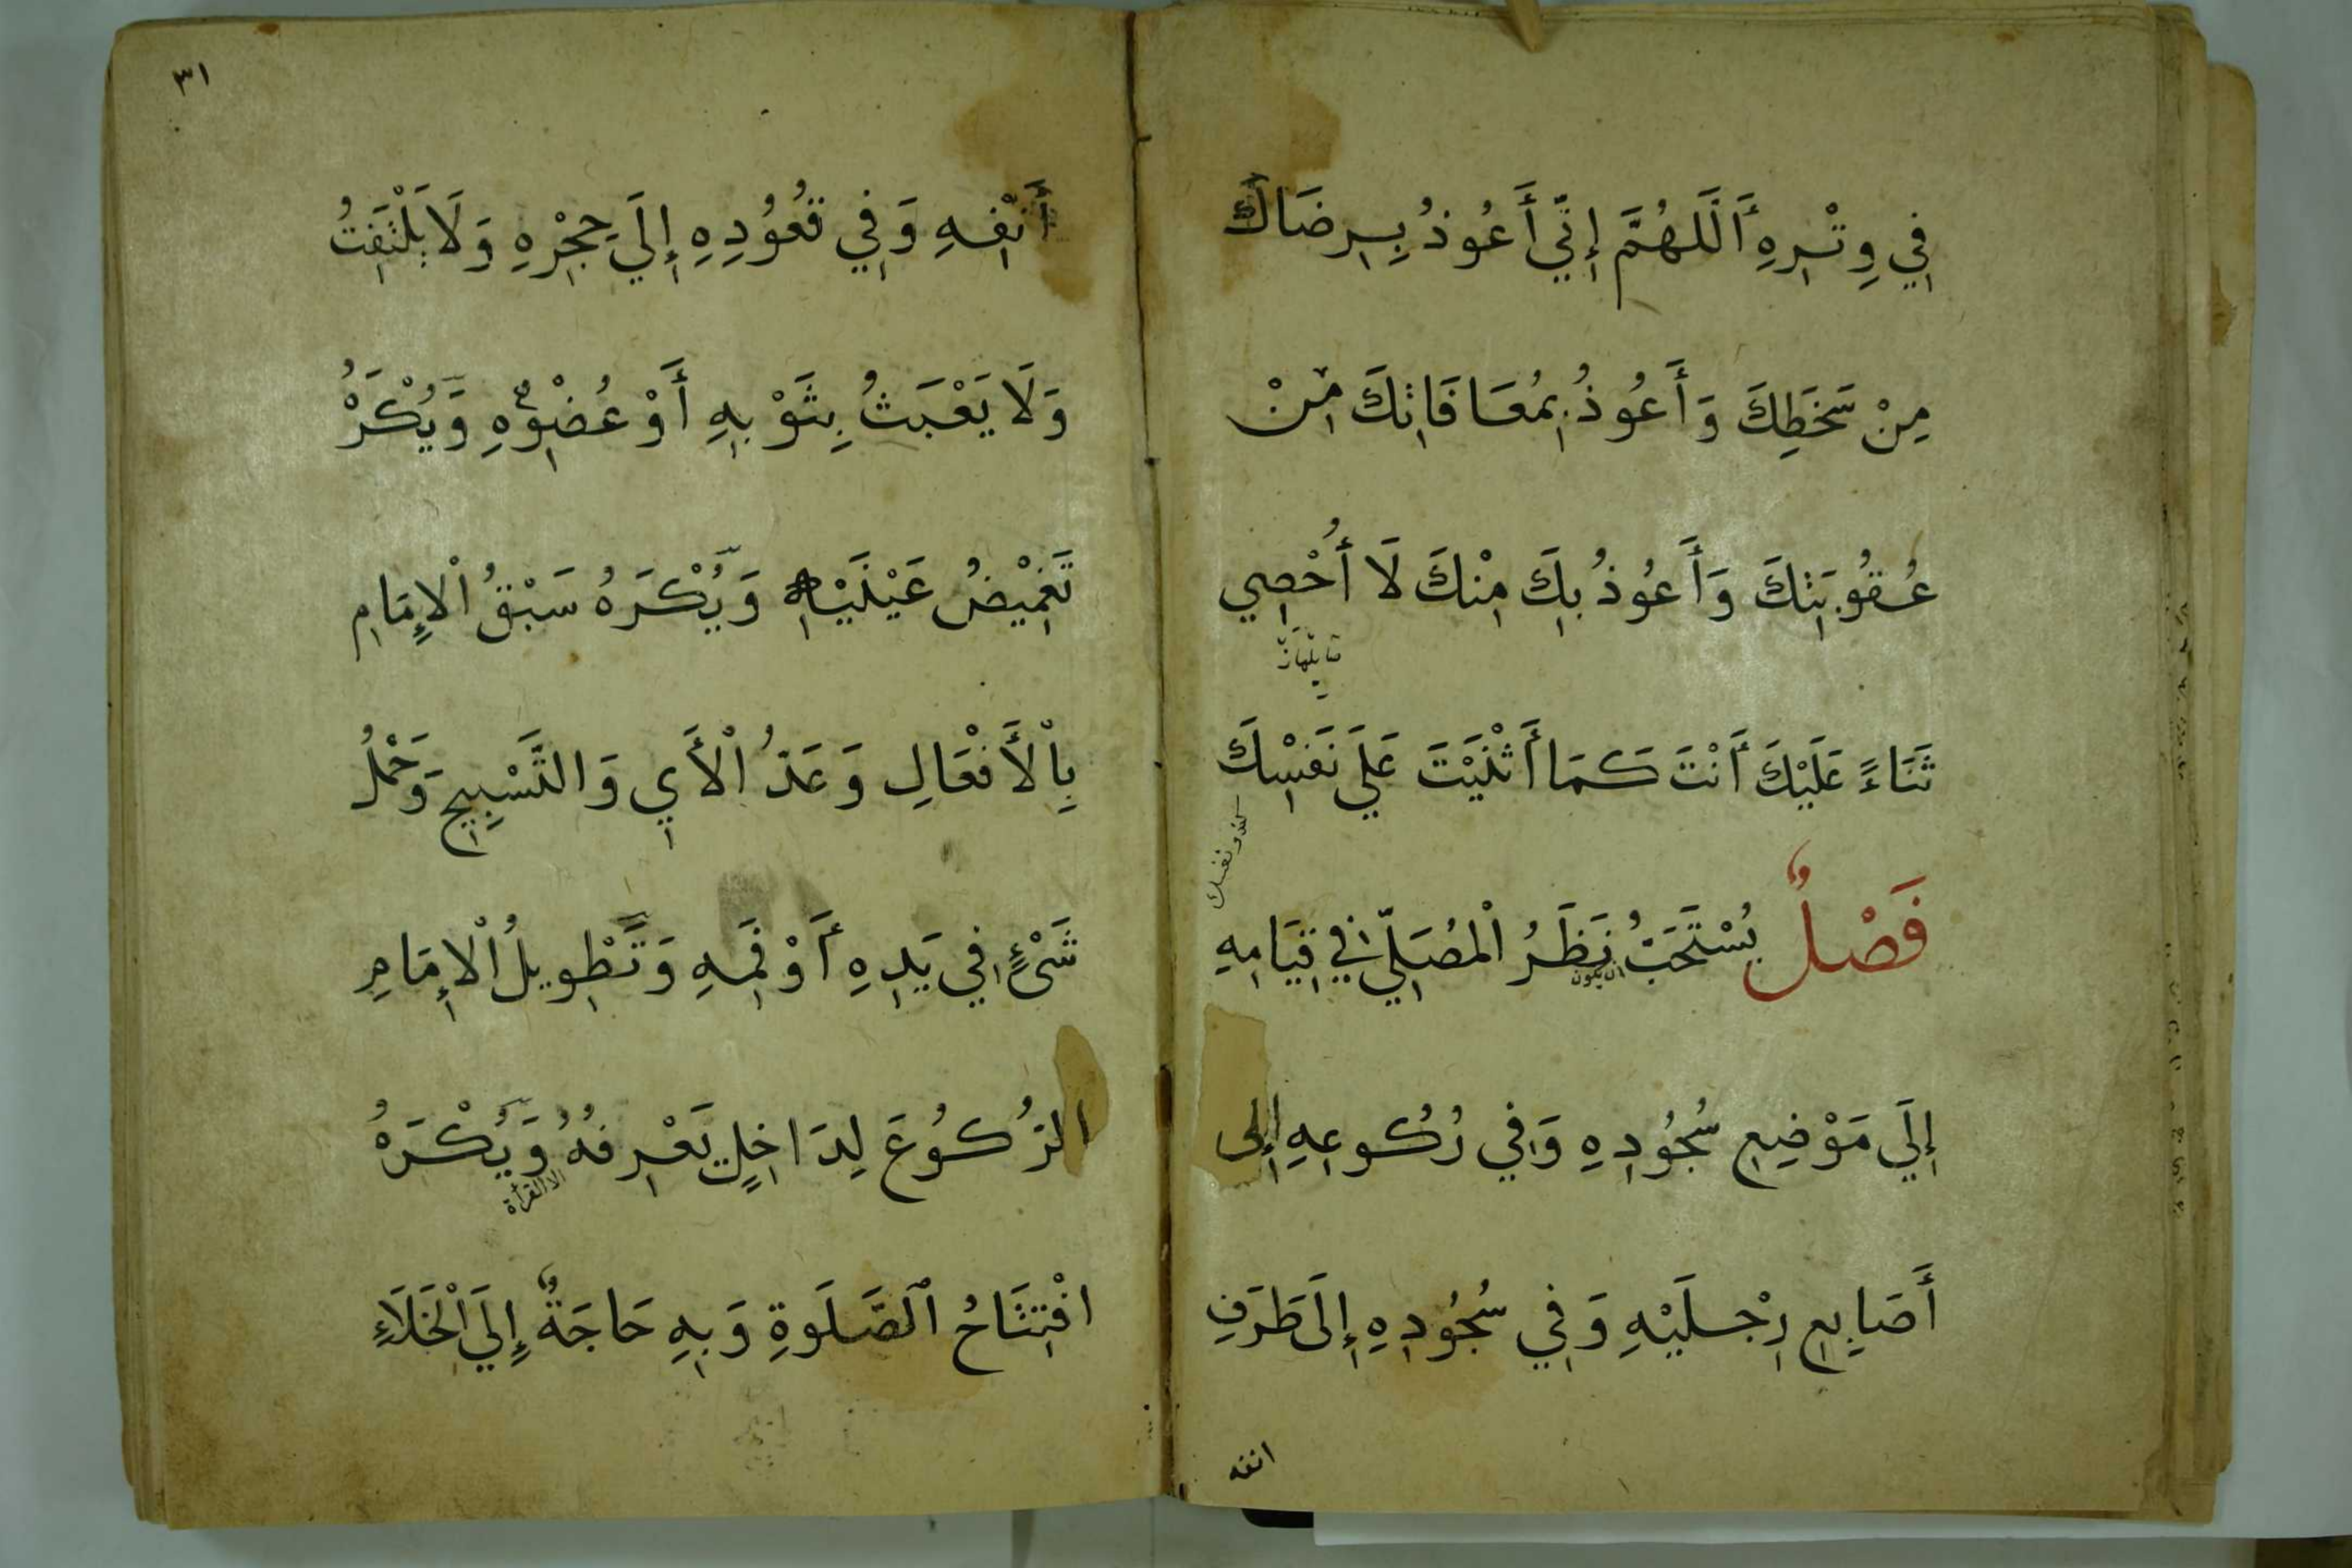 فِي وِتْرِهِ أَللَّهُمَّ إِنِّي أَعُوذُ بِرِضَاكَ
مِنْ سَخَطِكَ وَأَعُوذُ بِمُعَافَاتِكَ مِنْ
عُقُوبَتِكَ وَأَعُوذُ بِكَ مِنْكَ لَا أُحْصِي
ثَنَاءً عَلَيْكَ أَنْتَ كَمَا أَثْنَيْتَ عَلَى نَفْسِكَ
فَصْلٌ يُسْتَحَبُّ نَظَرُ الْمُصَلِّي فِي قِيَامِهِ
ان يكون
إِلَى مَوْضِعِ سُجُودِهِ وَفِي رُكُوعِهِ إِلى
أَصَابِعِ رِجْلَيْهِ وَفِي سُجُودِهِ إِلَى طَرَفِ
انفه
٣١
أَنْفِهِ وَفِي قُعُودِهِ إِلَي حِجْرِهِ وَلَا يَلْتَفِتُ
وَلَا يَعْبَثُ بِثَوْبِهِ أَوْ عُضْوِهِ وَيُكْرَهُ
تَغْمِيْضُ عَيْنَيْهِ وَيُكْرَهُ سَبْقُ الْإِمَامِ
بِالْأَفْعَالِ وَعَدُّ الْأَيِ وَالتَّسْبِيحِ وَحَمْلُ
شَيْءٍ فِي يَدِهِ أَوْ فَمِهِ وَتَطْوِيلُ الْإِمَامِ
الرُّكُوعَ لِدَاخِلٍ يَعْرِفُهُ وَيُكْرَهُ
الا القرأة
افْتِتَاحُ الصَّلَوةِ وَبِهِ حَاجَةٌ إِلَي الْخَلَاءِ